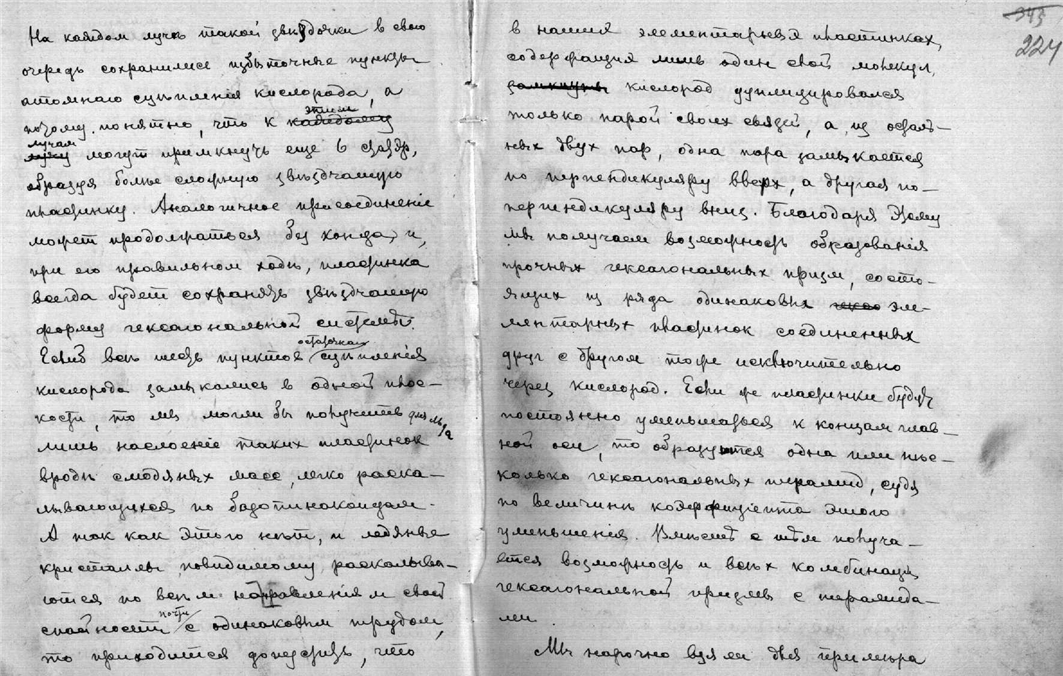 На каждом лучѣ такой звѣздочки в свою
очередь сохранились избыточные пункты
атомнаго сцѣпленія кислорода, а
потому понятно, что к этим каждому
лучам могут примкнуть еще 6 звѣзд,
образуя болѣе сложную звѣздчатую
пластинку. Аналогичное присоединеніе
может продолжаться без конца, и,
при его правильном ходѣ, пластинка
всегда будет сохранять звѣздчатую
форму гексагональной системы.
Еслиб всѣ шесть пунктов остаточнаго сцѣпленія
кислорода замыкались в одной плос-
кости, то мы могли бы получить для льда
лишь наслоеніе таких пластинок
вродѣ слюдяных масс, легко раска-
лывающуюся по
А так как этого нѣт, и ледяные
кристаллы, повидимому, раскалыва-
ются по всѣм направленіям своей
спайности почти с одинаковым трудом,
то приходится допустить, что
345
224
в наших элементарных пластинках,
содержащих лишь один свой молекул,
замкнуты кислород дуплицировался
только парой своих связей, а из осталь-
ных двух пар, одна пара замыкается
по перпендикуляру вверх, а другая по-
перпендикуляру вниз. Благодаря этому
мы получаем возможность образованія
прочных гексагональных призм, состо-
ящих из ряда одинаковых эле-
ментарных пластинок соединенных
друг с другом тоже исключительно
через кислород. Если же пластинки будут
постоянно уменьшаться к концам глав-
ной оси, то образуются одна или нѣс-
колько гексагональных пирамид, судя
по величинѣ коэффиціента этого
уменьшенія. Вмѣстѣ с тѣм получа-
ется возможность и всѣх комбинацій
гексагональной призмы с пирамида-
ми.
Мы нарочно взяли два примѣра